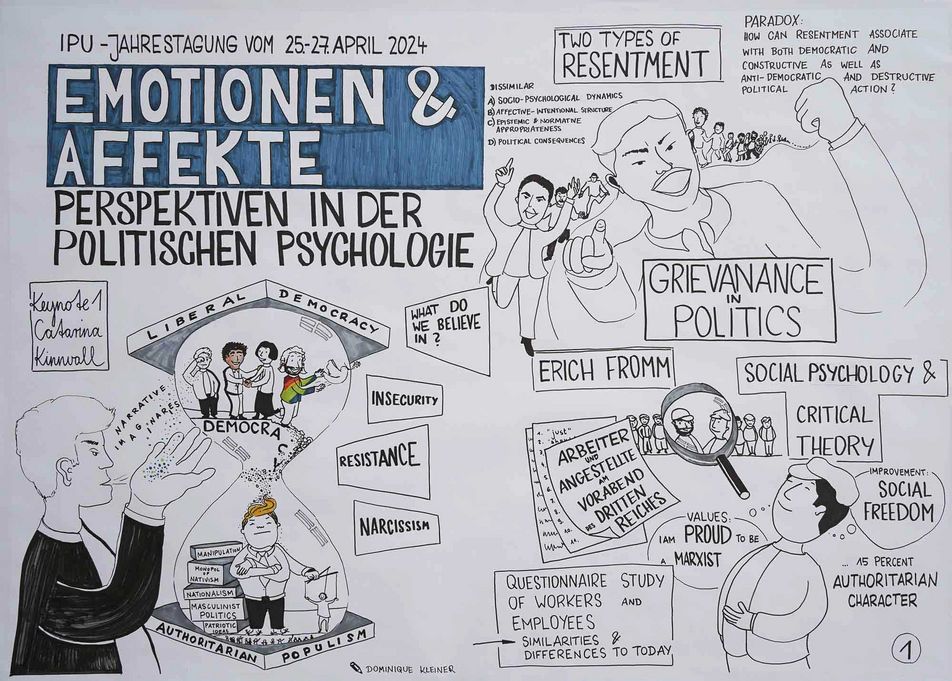 IPU-JAHRESTAGUNG VOM 25.-27. APRIL 2024
EMOTIONEN &
AFFEKTE
PERSPEKTIVEN IN DER
POLITISCHEN PSYCHOLOGIE
Keynote 1
Catarina
Kinnvall
LIBERAL DEMOCRACY
NARRATIVE
IMAGINARIES
DEMOCRACY
MANIPULATION
MONOPOL
OF
NATIVISM
NATIONALISM
MASCULINIST
POLITICS
PATRIOTIC
IDEAS
AUTHORITARIAN POPULISM
WHAT DO
WE BELIEVE
IN?
INSECURITY
RESISTANCE
NARCISSISM
DOMINIQUE KLEINER
TWO TYPES OF
RESENTMENT
DISSIMILAR
A) SOCIO-PSYCHOLOGICAL DYNAMICS
B) AFFECTIVE-INTENTIONAL STRUCTURE
C) EPISTEMIC & NORMATIVE
APPROPRIATENESS
D) POLITICAL CONSEQUENCES
PARADOX:
HOW CAN RESENTMENT ASSOCIATE
WITH BOTH DEMOCRATIC AND
CONSTRUCTIVE AS WELL AS
ANTI-DEMOCRATIC AND DESTRUCTIVE
POLITICAL ACTION?
GRIEVANANCE
IN
POLITICS
ERICH FROMM
SOCIAL PSYCHOLOGY &
CRITICAL
THEORY
1. "just"
2.
ARBEITER
UND
ANGESTELLTE
AM
VORABEND
DES
DRITTEN
REICHES
VALUES:
I AM PROUD TO BE
A MARXIST
IMPROVEMENT:
SOCIAL
FREEDOM
... 15 PERCENT
AUTHORITARIAN
CHARACTER
QUESTIONNAIRE STUDY
OF WORKERS AND
EMPLOYEES
→ SIMILARITIES &
DIFFERENCES TO TODAY
1